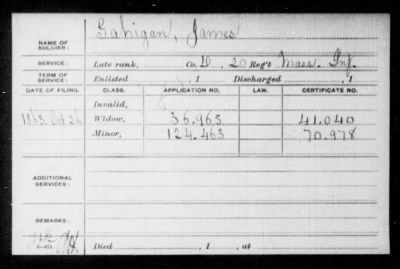 Gahigan, James
NAME OF SOLDIER:
SERVICE: Late rank, Co. D, 20 Reg't Mass. Inf.
TERM OF SERVICE: Enlisted , 1 Discharged , 1
DATE OF FILING. CLASS. APPLICATION NO. LAW. CERTIFICATE NO.
Invalid,
1863, Oct 26 Widow, 36.963 41.040
Minor, 124.463 70.978
ADDITIONAL SERVICES:
REMARKS:
Died , 1 , at